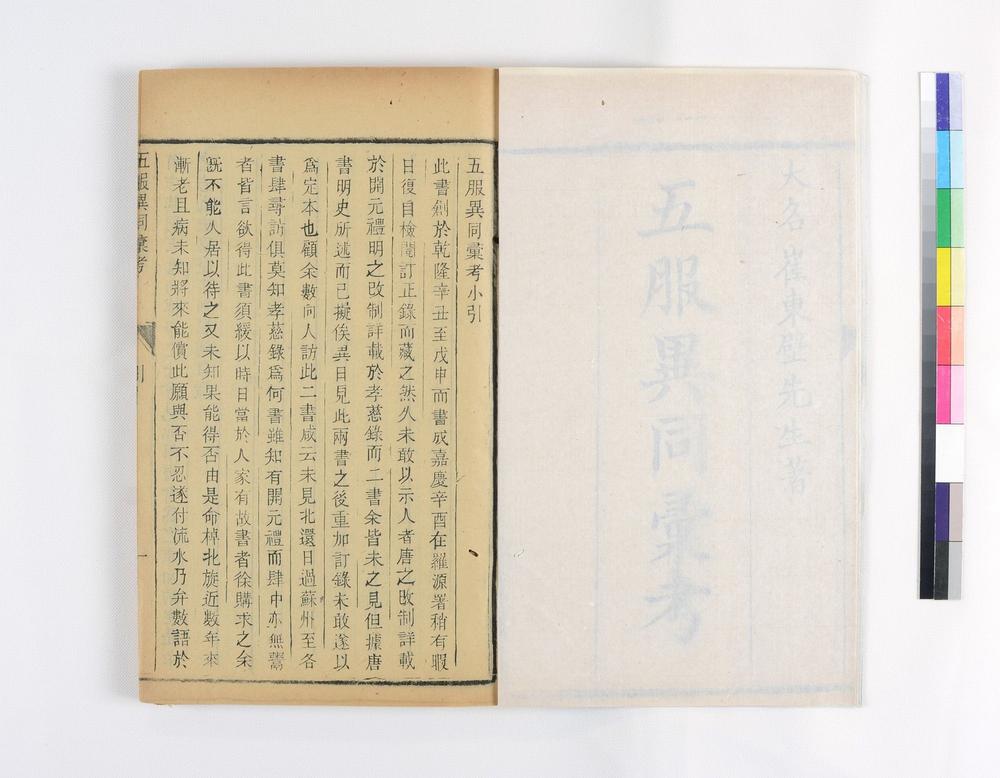 大名崔東壁先生著
五服異同彙考
五服異同彙考小引
此書創於乾隆辛丑至戊申而書成嘉慶辛酉在羅源署稍有暇
日復自檢閱訂正錄而藏之然久未敢以示人者唐之改制詳載
於開元禮明之改制詳載於孝慈錄而二書余皆未之見但據唐
書明史所述而已擬俟異日見此兩書之後重加訂錄未敢遂以
爲定本也顧余數向人訪此二書咸云未見北還日過蘇州至各
書肆尋訪俱莫知孝慈錄爲何書雖知有開元禮而肆中亦無鬻
者皆言欲得此書須緩以時日當於人家有故書者徐購求之余
旣不能久居以待之又未知果能得否由是命棹北旋近數年來
漸老且病未知將來能償此願與否不忍遂付流水乃弁數語於
五服異同彙考
引
一